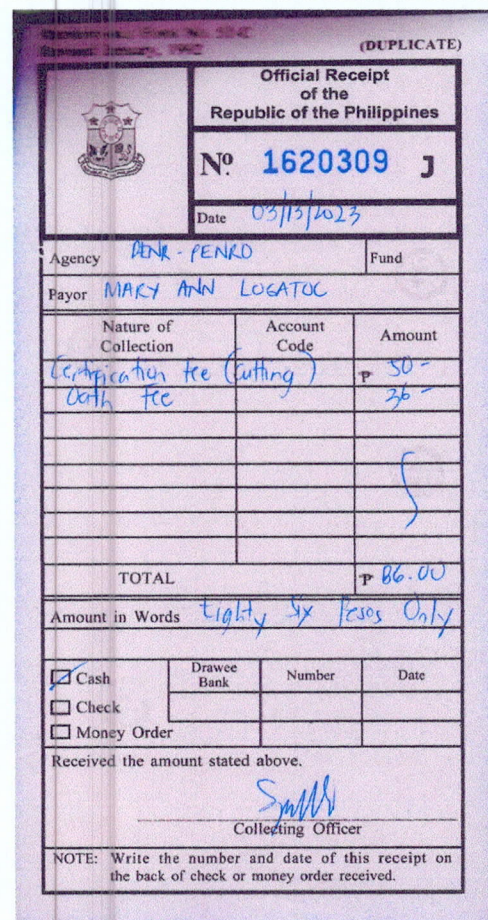 (DUPLICATE)
Official Receipt
of the
Republic of the Philippines
Nº 1620309 J
Date 03/13/2023
Agency DENR - PENRO
Fund
Payor MARY ANN LOGATOC
Nature of Collection Account Code Amount
Certification fee (Cutting) ₱ 50 -
Oath fee 36 -
TOTAL ₱ 86.00
Amount in Words Eighty Six Pesos Only
Cash Drawee Bank Number Date
Check
Money Order
Received the amount stated above.
Collecting Officer
NOTE: Write the number and date of this receipt on
the back of check or money order received.